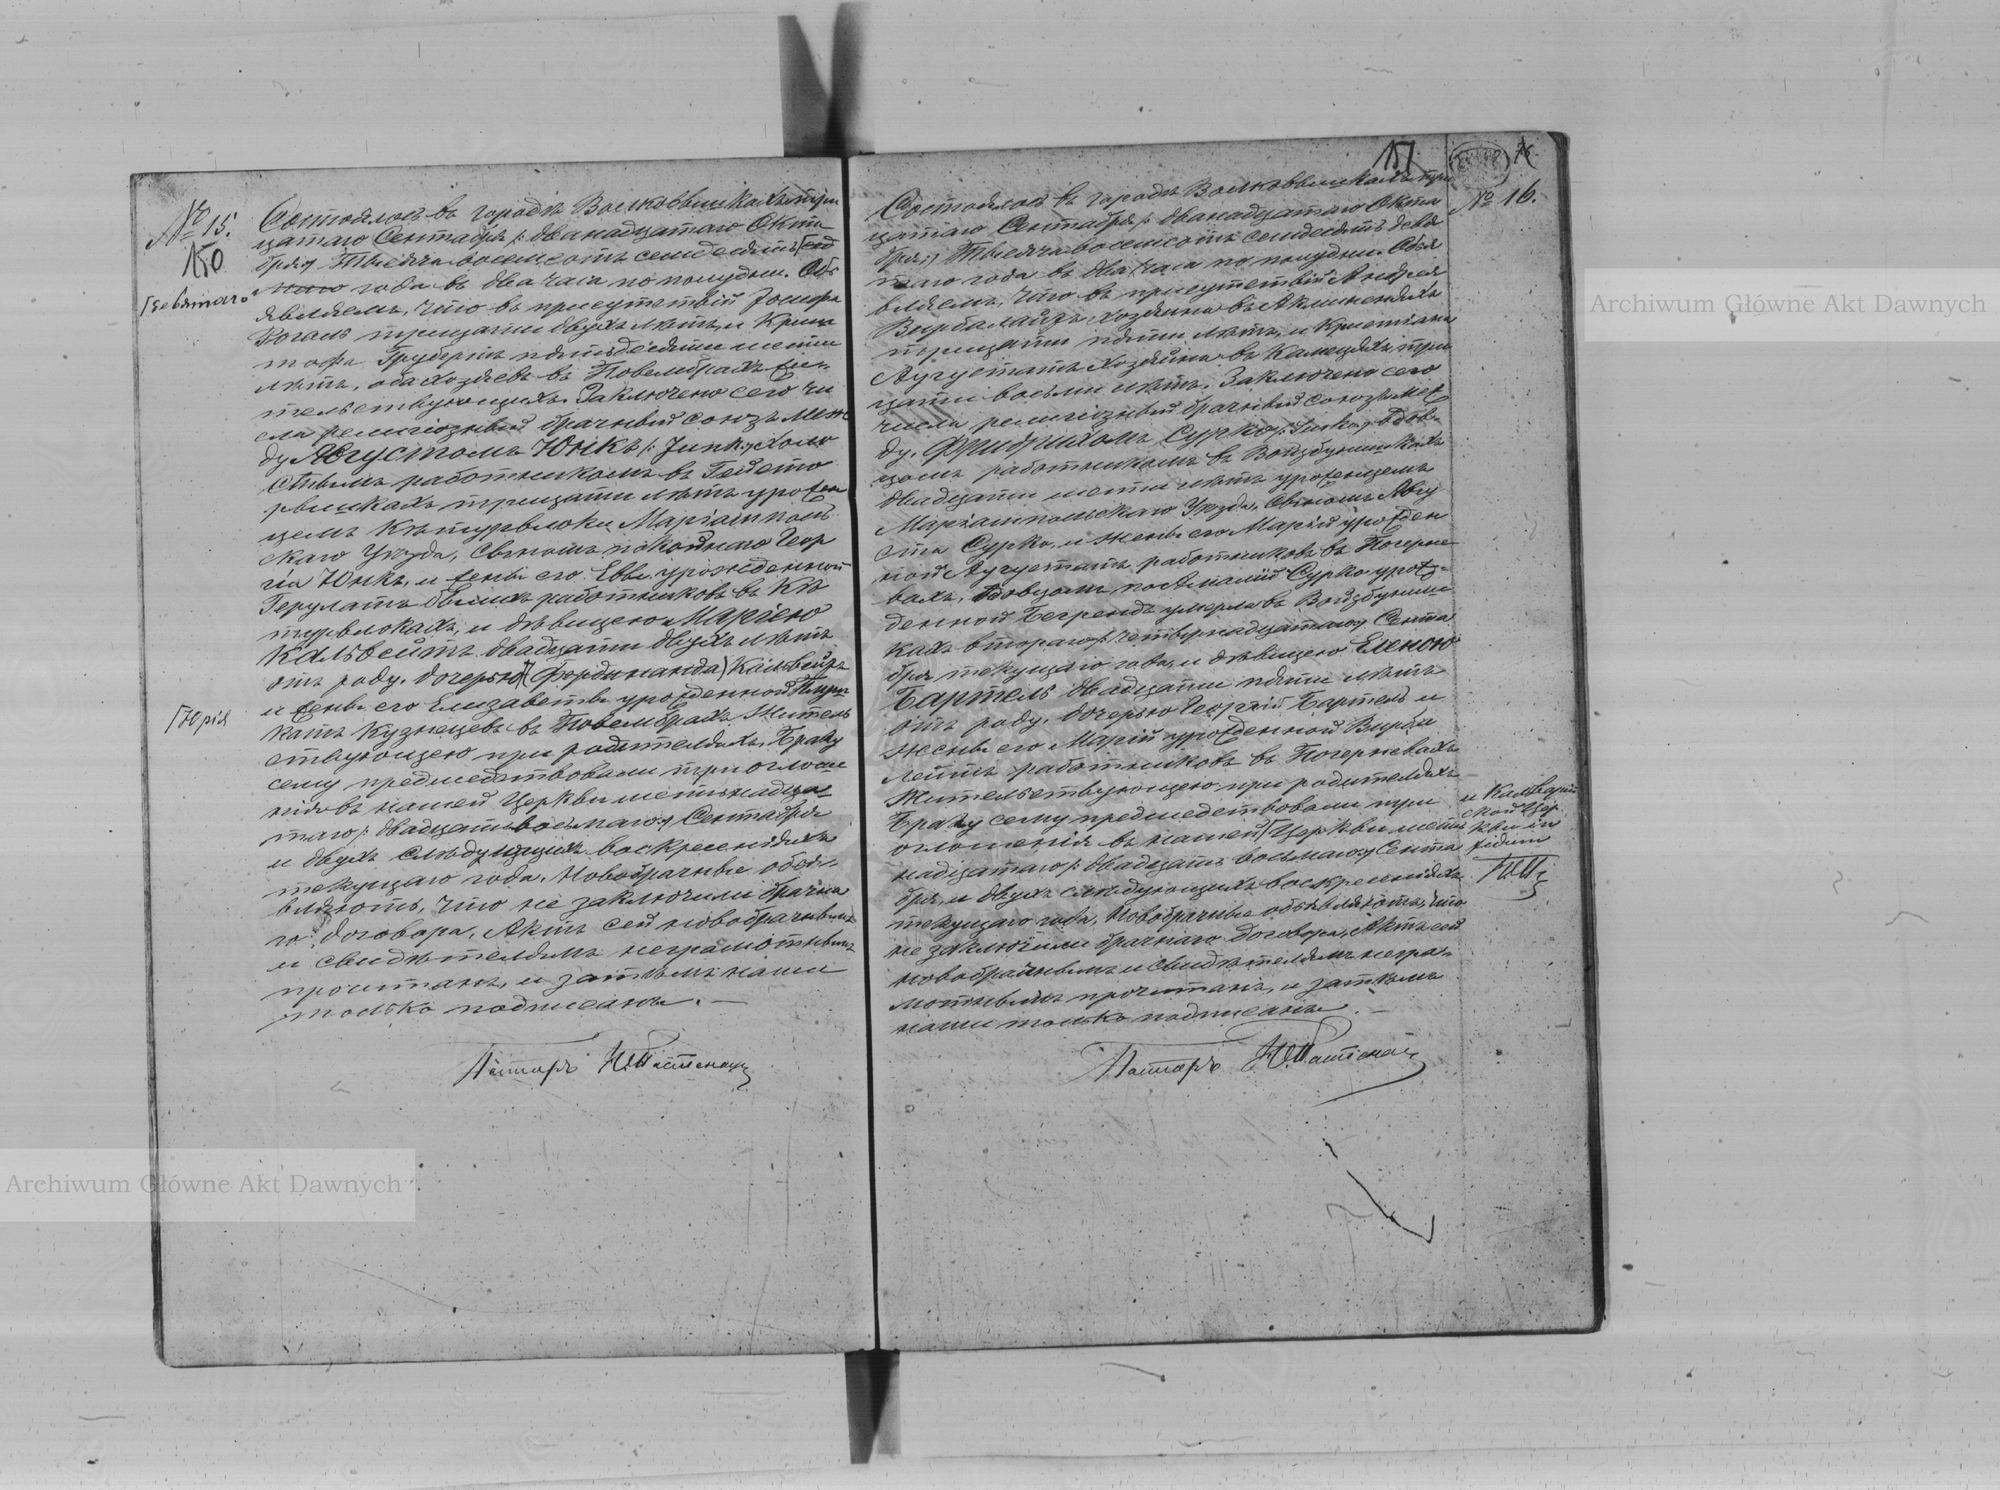 № 15.
150
Состоялось въ городѣ Волковышкахъ трид
цатаго Сентября /: двѣнадцатаго Октя
бря :/ Тысяча восемсотъ семдесятъ
девятаго
года въ два часа по полудни. Объ
являемъ, что въ присутствіи Іосифа
тридцати двухъ лѣтъ, и Крис
тофа Грубертъ пятьдесяти шести
лѣтъ, оба хозяевъ въ Новемѣрахъ жи-
тельствующихъ. Заключено сего чи
сла религіозный брачный союзъ меж
ду Августомъ Юнкъ /: Junk :/ холо
стымъ работникомъ въ
тридцати лѣтъ урожен
цемъ Маріамполь
скаго Уѣзда, сыномъ покойнаго Геор
гія Юнкъ, и жены его Еввы урожденной
Герулатъ бывшихъ работниковъ въ Кѣ
турвлокахъ, и дѣвицею Маріею
Кальвейтъ двадцати двухъ лѣтъ
отъ роду, дочерью (Фердинанда) Кальвейтъ
Юрія
и жены его Елизаветы урожденной
катъ Кузнецевъ въ Новемѣрахъ житель
ствующею при родителяхъ. Браку
сему предшествовали три оглаше
нія въ нашей Церкви шестьнадца
таго /: двадцать восьмаго :/ Сентября
и двухъ слѣдующихъ воскресеніяхъ
текущаго года. Новобрачные объя-
вляютъ, что не заключили брачна
го договора. Актъ сей новобрачнымъ
и свидѣтелямъ неграмотнымъ
прочитанъ, и затѣмъ нами
только подписанъ. —
Пасторъ
151
№ 16.
Состоялось въ городѣ Волковышкахъ трид
цатаго Сентября /: двѣнадцатаго Октя
бря :/ Тысяча восемсотъ семдесятъ девя
таго года въ два часа по полудни. Объя
вляемъ, что въ присутствіи Андрея
Вирбалайтъ хозяина въ
тридцати пяти лѣтъ, и Кристіана
Аугустатъ хозяина въ Камецяхъ трид
цати восьми лѣтъ. Заключено сего
числа религіозный брачный союзъ меж
ду Фридрихомъ Сурко /: Surko :/ вдов-
цомъ работникомъ въ Войздунишкахъ
двадцати шести лѣтъ уроженцемъ
Маріампольскаго Уѣзда, сыномъ Авгу
ста Сурко, и жены его Маріи урожден
ной Аугустатъ, работниковъ въ Погерне
вахъ, вдовцомъ по Амаліи Сурко урож-
денной Бегрендъ умерла въ Войздуниш
кахъ втораго /: четырнадцатаго :/ Сентя
бря текущаго года, и дѣвицею Еленою
Бартель двадцати пяти лѣтъ
отъ роду, дочерью Георгія Бартель и
жены его Маріи урожденной Вирба
лейтъ работниковъ въ Погерневахъ
жительствующею при родителяхъ.
Браку сему предшествовали три
оглашенія въ нашей Церкви шесть
и Кальварій
ской Цер
кви
надцатаго /: двадцать восьмаго :/ Сентя
бря, и двухъ слѣдующихъ воскресеніяхъ
текущаго года. Новобрачные объявляютъ, что
не заключили брачнаго договора. Актъ сей
новобрачнымъ и свидѣтелямъ негра-
мотнымъ прочитанъ, и затѣмъ
нами только подписанъ. —
Пасторъ
Archiwum Główne Akt Dawnych
Archiwum Główne Akt Dawnych